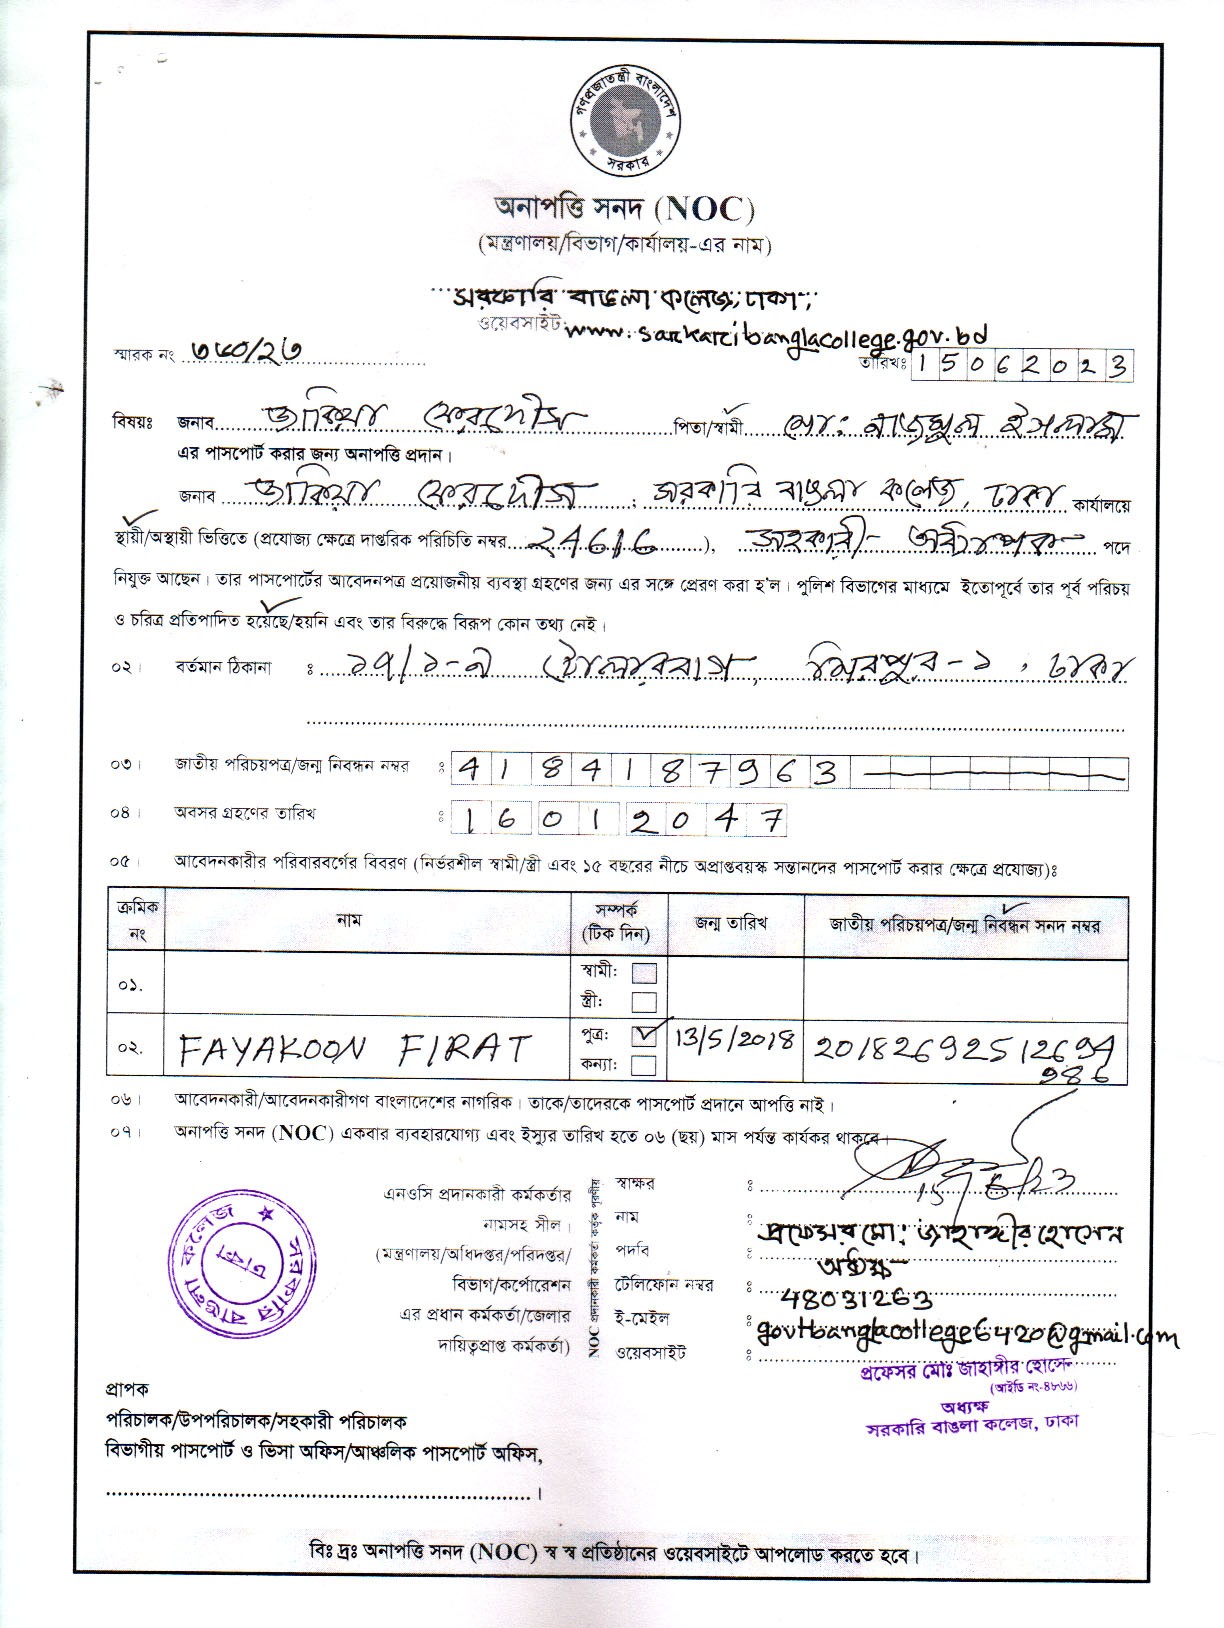 গণপ্রজাতন্ত্রী বাংলাদেশ
সরকার
অনাপত্তি সনদ (NOC)
(মন্ত্রণালয়/বিভাগ/কার্যালয়-এর নাম)
সরকারি বাঙলা কলেজ, ঢাকা,
ওয়েবসাইট: www.sarkaribanglacollege.gov.bd
স্মারক নং ৩৬০/২৩
তারিখঃ 15062023
বিষয়ঃ জনাব জাকিয়া ফেরদৌস পিতা/স্বামী মো: নাজমুল ইসলাম
এর পাসপোর্ট করার জন্য অনাপত্তি প্রদান।
জনাব জাকিয়া ফেরদৌস, সরকারি বাঙলা কলেজ, ঢাকা কার্যালয়ে
স্থায়ী/অস্থায়ী ভিত্তিতে (প্রযোজ্য ক্ষেত্রে দাপ্তরিক পরিচিতি নম্বর 24616), সহকারী অধ্যাপক পদে
নিযুক্ত আছেন। তার পাসপোর্টের আবেদনপত্র প্রয়োজনীয় ব্যবস্থা গ্রহণের জন্য এর সঙ্গে প্রেরণ করা হ'ল। পুলিশ বিভাগের মাধ্যমে ইতোপূর্বে তার পূর্ব পরিচয়
ও চরিত্র প্রতিপাদিত হয়েছে/হয়নি এবং তার বিরুদ্ধে বিরূপ কোন তথ্য নেই।
০২। বর্তমান ঠিকানা : ১৭/১-এ টোলারবাগ, মিরপুর-১, ঢাকা
০৩। জাতীয় পরিচয়পত্র/জন্ম নিবন্ধন নম্বর : 4184187963
০৪। অবসর গ্রহণের তারিখ : 16012047
০৫। আবেদনকারীর পরিবারবর্গের বিবরণ (নির্ভরশীল স্বামী/স্ত্রী এবং ১৫ বছরের নীচে অপ্রাপ্তবয়স্ক সন্তানদের পাসপোর্ট করার ক্ষেত্রে প্রযোজ্য)ঃ
ক্রমিক নং নাম সম্পর্ক (টিক দিন) জন্ম তারিখ জাতীয় পরিচয়পত্র/জন্ম নিবন্ধন সনদ নম্বর
০১. স্বামী:
স্ত্রী:
০২. FAYAKOON FIRAT পুত্র: 13/5/2018 20182692512694
986
কন্যা:
০৬। আবেদনকারী/আবেদনকারীগণ বাংলাদেশের নাগরিক। তাকে/তাদেরকে পাসপোর্ট প্রদানে আপত্তি নাই।
০৭। অনাপত্তি সনদ (NOC) একবার ব্যবহারযোগ্য এবং ইস্যুর তারিখ হতে ০৬ (ছয়) মাস পর্যন্ত কার্যকর থাকবে।
সরকারি বাঙলা কলেজ
ঢাকা
এনওসি প্রদানকারী কর্মকর্তার
নামসহ সীল।
(মন্ত্রণালয়/অধিদপ্তর/পরিদপ্তর/
বিভাগ/কর্পোরেশন
এর প্রধান কর্মকর্তা/জেলার
দায়িত্বপ্রাপ্ত কর্মকর্তা)
NOC প্রদানকারী কর্মকর্তা কর্তৃক পূরণীয়
স্বাক্ষর : 15/6/23
নাম : প্রফেসর মো: জাহাঙ্গীর হোসেন
পদবি : অধ্যক্ষ
টেলিফোন নম্বর : 48031263
ই-মেইল : govtbanglacollege6420@gmail.com
ওয়েবসাইট :
প্রফেসর মোঃ জাহাঙ্গীর হোসেন
(আইডি নং-৪৮৬৬)
অধ্যক্ষ
সরকারি বাঙলা কলেজ, ঢাকা
প্রাপক
পরিচালক/উপপরিচালক/সহকারী পরিচালক
বিভাগীয় পাসপোর্ট ও ভিসা অফিস/আঞ্চলিক পাসপোর্ট অফিস,
বিঃ দ্রঃ অনাপত্তি সনদ (NOC) স্ব স্ব প্রতিষ্ঠানের ওয়েবসাইটে আপলোড করতে হবে।